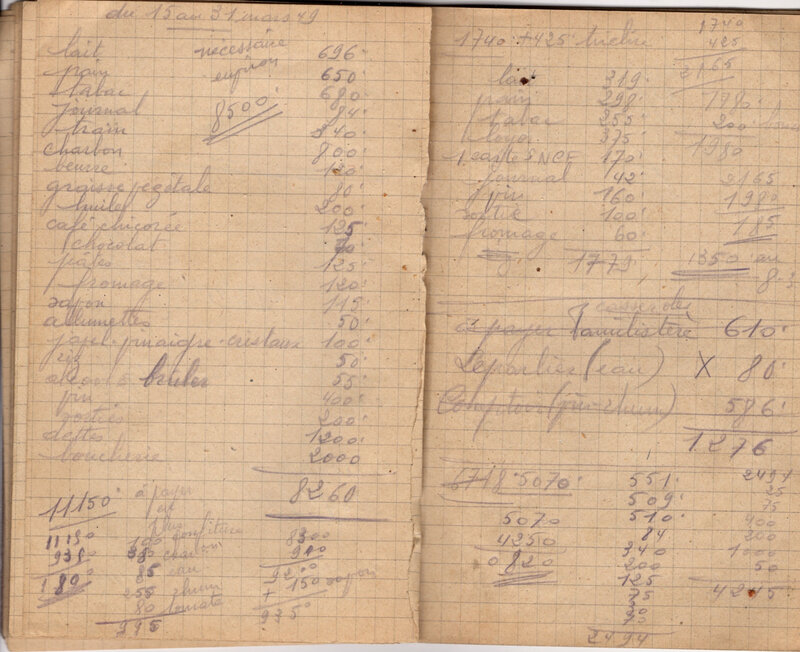 du 15 au 31 mars 49
lait nécessaire 696
pain environ 650
tabac 680
journal 8500 84
train 340
charbon 800
beurre 130
graisse végétale 80
huile 200
café chicorée 125
chocolat 70
pâtes 125
fromage 120
savon 115
allumettes 50
100
riz 50
alcool à brûler 55
vin 400
sorties 200
dettes 1200
boucherie 2000
8260
11150 à payer
plus
1119 100 confiture 8300
935 charbon 900
180 85 eau 9200
258 rhum + 150
80 tomate 935
995
1740
1740 + 425 425
2165
lait 319
pain 298 1780
tabac 255 200
loyer 375 1980
1 carte SNCF 170
journal 42 2165
vin 160 1980
sortie 100 185
fromage 60
1779 1350 au
casserole
à payer 610
(eau) X 80
Comptoir (vin rhum) 586
1276
6718 5070 551 2494
509 25
5070 510 75
4250 84 400
0820 340 200
200 1000
125 50
75 4245
70
2494